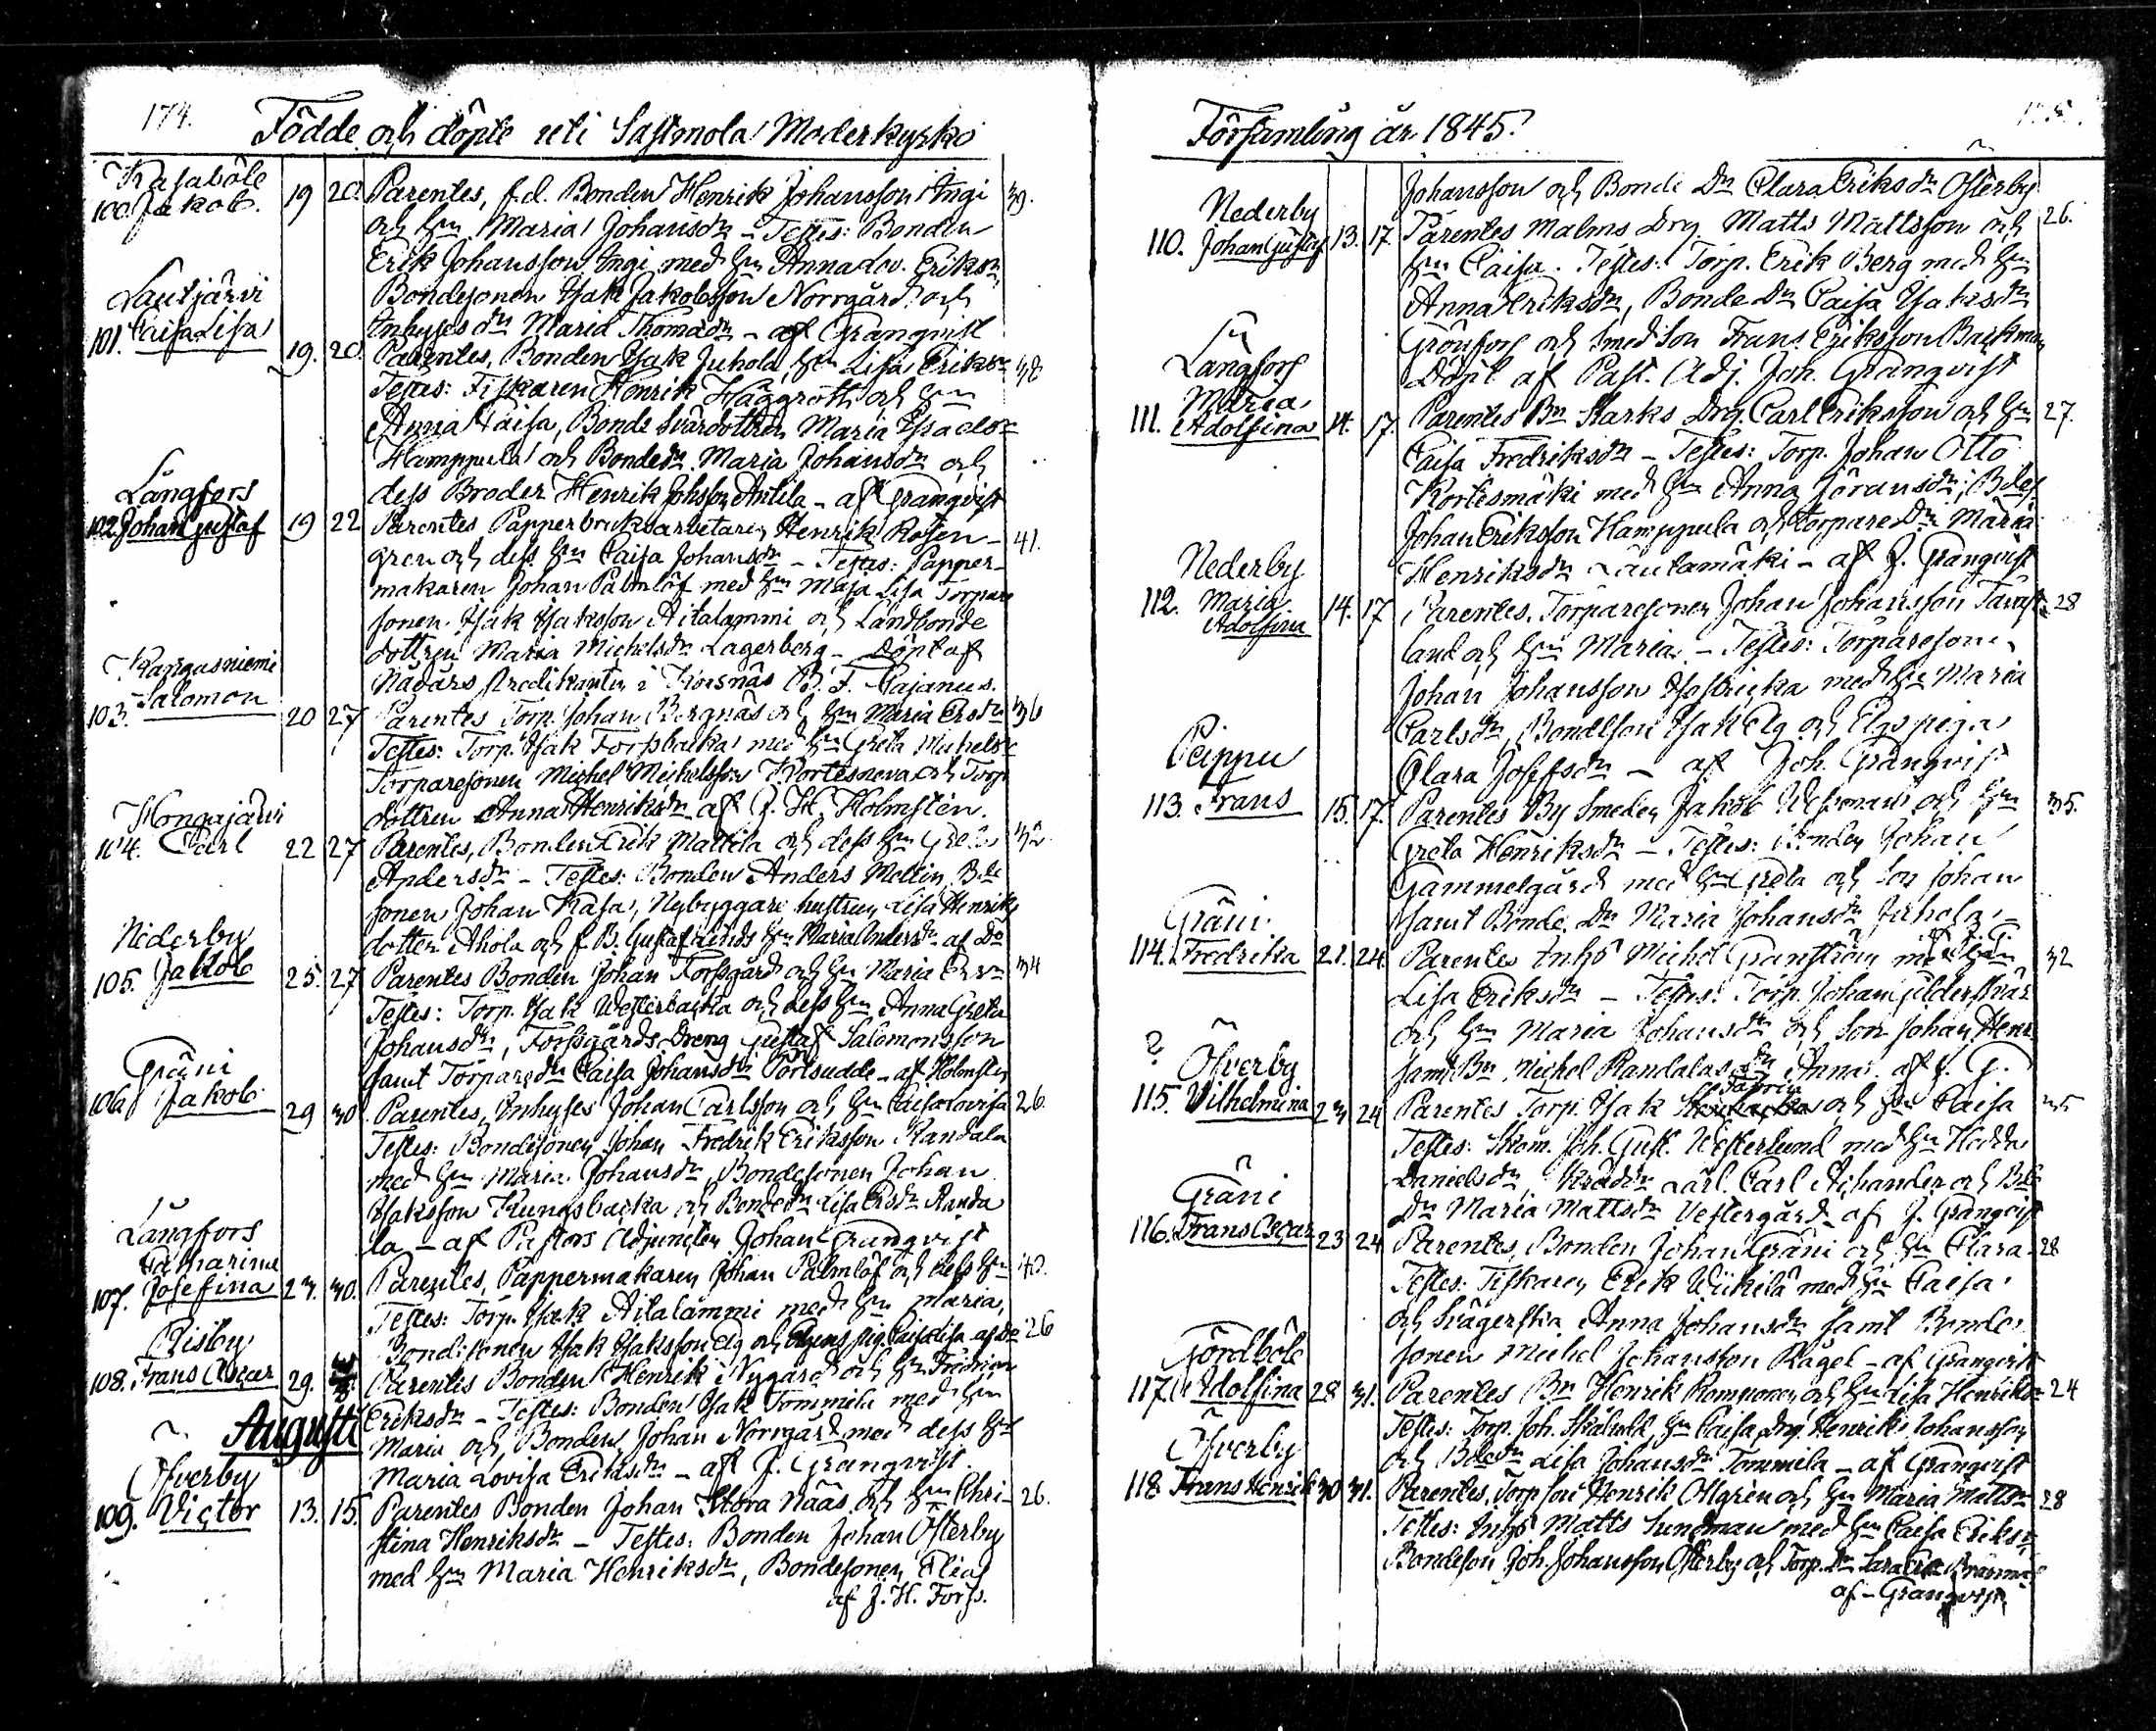 174.
Födde och döpte uti Sastmola Moderkyrko
Kasaböle
100. Jakob. 19 20. Parentes, f.d. Bonden Henrik Johansson Ingi 39.
och hu Maria Johansdr – Testes: Bonden
Erik Johansson Ingi med hu Anna Lov. Eriksdr
Bondesonen Isak Jakobsson Norrgård och
Inhyses dr Maria Thomadr – af Granqvist
Lautjärvi
101. Caisa Lisa 19. 20. Parentes, Bonden Isak Juhola, hu Lisa Eriksdr 38
Testes: Fiskaren Henrik Häggroth och hu
Anna Caisa, Bonde Svärdottren Maria Esadr
Hamppula och Bondedr Maria Johansdr och
dess Broder Henrik Johsson Antila – af Granqvist
Långfors
102. Johan Gustaf 19 22 Parentes Papperbruksarbetaren Henrik Rosen- 41.
gren och dess hu Caisa Johansdr – Testes: Papper-
makaren Johan Palmlöf med hu Maja Lisa Torpare
sonen Isak Isaksson Aitalammi och Landbonde
dottren Maria Michelsdr Lagerberg – Döpt af
Nådårs Predikanten i Korsnäs B. F. Cajanus.
Kangasniemi
103. Salomon 20 27 Parentes Torp. Johan Bergnäs och hu Maria Ersdr 36
Testes: Torp. Isak Forsbacka med hu Greta Michelsdr
Torparesonen Michel Michelsson Kortesneva och Torp
dottren Anna Henriksdr af J. H. Holmstén.
Hongajärvi
104. Carl 22 27 Parentes, Bonden Erik Mattila och dess hu Greta 32
Andersdr – Testes: Bonden Anders Mellin, Bde
sonen Johan Kasa, Nybyggare hustrun Lisa Henriks
dotter Ahola och f. B. Gustaf Linds hu Maria Andersdr af Do
Nederby
105. Jakob 25. 27 Parentes Bonden Johan Forsgård och hu Maria Ersdr 34
Testes: Torp. Isak Westerbacka och dess hu Anna Greta
Johansdr, Forsgårds Dreng Gustaf Salomonsson
samt Torparedr Caisa Johansdr Pörtsudde – af Holmstén
Gräni
106 Jakob 29 30. Parentes, Inhyses Johan Carlsson och hu Caisa Lovisa 26.
Testes: Bondesonen Johan Fredrik Eriksson Randala
med hu Maria Johansdr, Bondesonen Johan
Isaksson Kungsbacka och Bondedr Lisa Ersdr Randa
la – af Pastors Adjuncten Johan Granqvist
Långfors
Catharina
107. Josefina 23. 30. Parentes, Pappermakaren Johan Palmlöf och dess hu 40.
Testes: Torp. Isak Aitalammi med hu Maria,
Bondesonen Isak Isaksson Elg och Elgens pig. Caisa Lisa af Do
Risby
108. Frans Oscar 29. Parentes Bonden Henrik Nygård och hu Fredrica 26
Eriksdr – Testes: Bonden Isak Tommila med hu
Maria och Bonden Johan Norrgård med dess hu
Maria Lovisa Eriksdr – af J. Granqvist.
Augusti
Öfverby
109. Victor 13. 15. Parentes Bonden Johan Stora Näas och hu Chri- 26.
stina Henriksdr – Testes: Bonden Johan Österby
med hu Maria Henriksdr, Bondesonen Elias
af J. H. Forss.
Församling år 1845.
Johansson och Bonde Dr Clara Eriksdr Österby
Nederby
110. Johan Gustaf 13. 17. Parentes Malms Drg. Matts Mattsson och 26.
hu Caisa. Testes: Torp. Erik Berg med hu
Anna Eriksdr, Bonde Dr Caisa Isaksdr
Grönfors och Smed Son Frans Eriksson Backman
Döpt af Past. Adj. Joh. Granqvist
Långfors
Maria
111. Adolfina 14. 17. Parentes Bn Starks Drg. Carl Eriksson och hu 27.
Caisa Fredriksdr – Testes: Torp. Johan Otto
Kortesmäki med hu Anna Göransdr; Bdes.
Johan Eriksson Hamppula och torpare Dr Maria
Henriksdr Lautamäki – af J. Granqvist
Nederby
112. Maria 14. 17 Parentes. Torparesonen Johan Johansson Tavast- 28
Adolfina
land och hu Maria – Testes: Torparesonen
Johan Johansson med hu Maria
Carlsdr, Bondeson Isak Elg och Elgs piga
Clara Josefsdr – af Joh. Granqvist
Peippu
113. Frans 15. 17. Parentes By Smeden Jakob och hu 35.
Greta Henriksdr – Testes: Bonden Johan
Gammelgård med hu Greta och Son Johan
samt Bonde Dr Maria Johansdr Juhola –
af J. G.
Gräni.
114. Fredrika 21. 24. Parentes Inhs Michel Granström med hu 32
Lisa Eriksdr – Testes: Torp. Johan Gilderskär
och hu Maria Johansdr och Son Johan Henr.
samt Bn Michel Randalas dr Anna. af J. G.
? Öfverby
115. Vilhelmina 23 24 Parentes Torp. Isak och hu Caisa 35
Testes: Skom. Joh. Gust. Westerlund med hu Hedda
Danielsdr, Skräddr Lärl. Carl Achander och Bde
Dr Maria Mattsdr Vestergård af J. Granqvist
Gräni
116. Frans Oscar 23 24 Parentes, Bonden Johan Gräni och hu Clara 28
Testes: Fiskaren Erik Wiikilä med hu Caisa
och Svägerska Anna Johansdr samt Bonde
sonen Michel Johansson Kågel – af Granqvist
Tjördböle
117. Adolfina 28 31. Parentes Bn Henrik Romponen och hu Lisa Henriksdr 24
Testes: Torp. Joh. Sköhuld, hu Caisa, Drg. Henrik Johansson
och Bdedr Lisa Johansdr Tommila – af Granqvist
Öfverby
118 Frans Henrik 30 31. Parentes, Torp son Henrik Ollgren och hu Maria Mattsdr 28
Testes: Inhs Matts Sundman med hu Caisa Eriksdr
Bondeson Joh. Johansson Österby och Torp. Dr Sara Brännäs
af – Granqvist